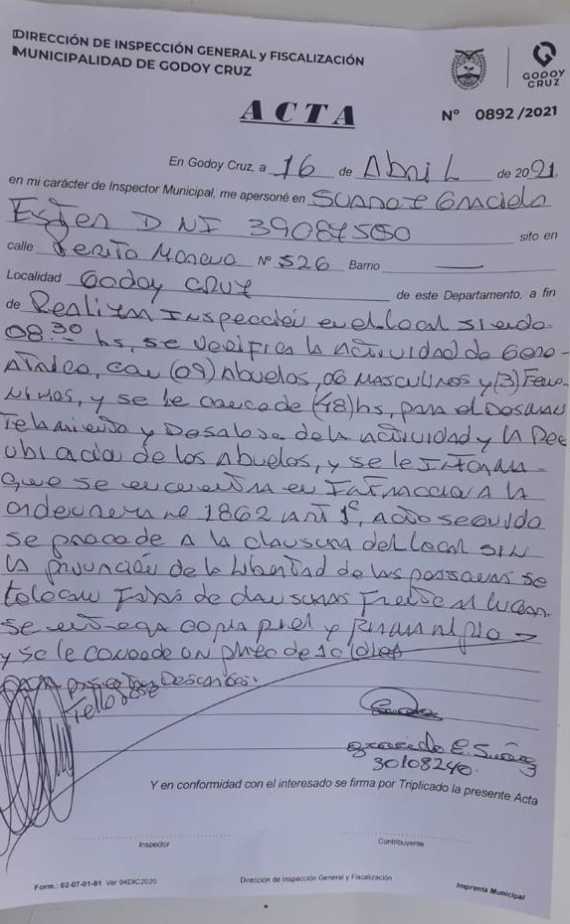 DIRECCIÓN DE INSPECCIÓN GENERAL y FISCALIZACIÓN
MUNICIPALIDAD DE GODOY CRUZ
GODOY
CRUZ
ACTA
N° 0892/2021
En Godoy Cruz, a 16 de Abril de 2021.
en mi carácter de Inspector Municipal, me apersoné en Suarez Graciela
Ester DNI sito en
calle Perito Moreno N° 526 Barrio —
Localidad Godoy Cruz de este Departamento, a fin
de Realizar Inspección en el local siendo
08:30 hs, se verifica la actividad de Gero-
, con (09) Abuelos, 06 masculinos y (3) Feme-
ninos, y se le concede (48) hs, para el
y Desalojo de la actividad y la Ree
ubicacio de los Abuelos, y se le Informa
que se encuentra en Infraccion a la
1862 Art 1°, Acto seguido
se procede a la clausura del local sin
la privación de la libertad de las personas se
colocan Fajas de clausuras Frente al
se entrega copia y Firman al pie
y se le concede un plazo de 10 dias
para Descargos.
Tello
E. Suárez
30108240
Y en conformidad con el interesado se firma por Triplicado la presente Acta
Inspector
Contribuyente
Form.: 02-07-01-01 Ver 04DIC2020
Dirección de Inspección General y Fiscalización
Imprenta Municipal